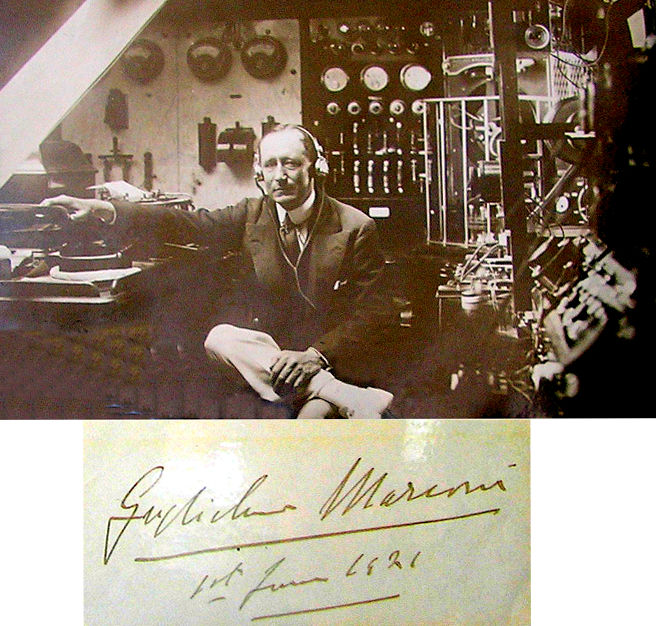 Guglielmo Marconi
1st June 1921